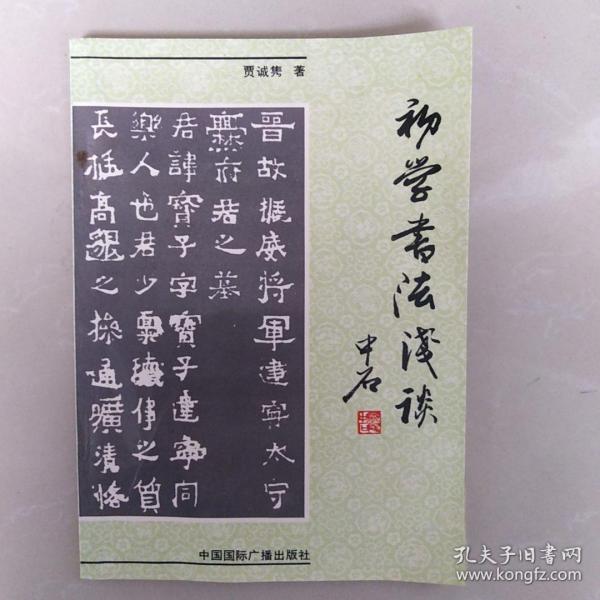 贾诚隽 著
初学書法淺谈
中石
晉故振威將軍建寧太守
爨府君之墓
君諱寶子字寶子建寧同
樂人也君少稟瓌偉之質
長挺高邈之操通曠清恪
中国国际广播出版社
孔夫子旧书网
www.kongfz.com